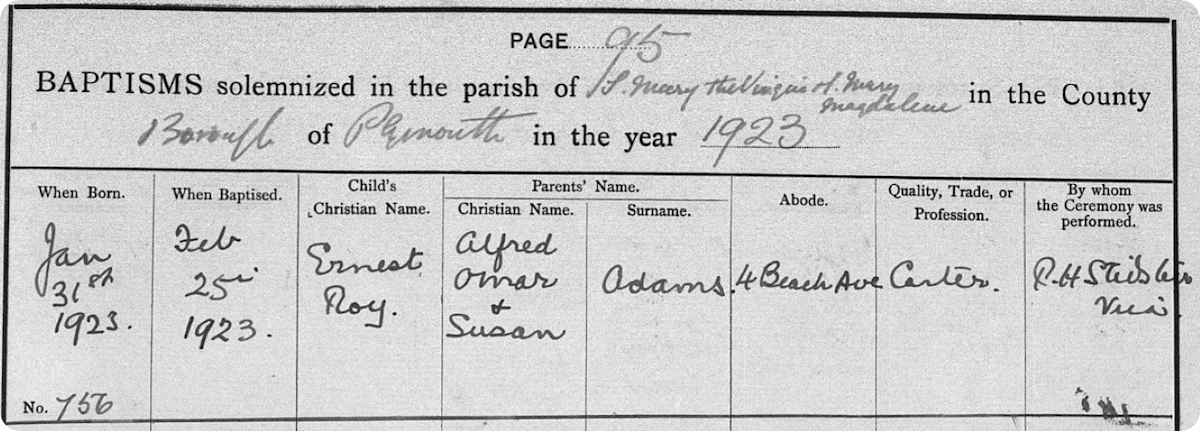 PAGE 95
BAPTISMS solemnized in the parish of St. Mary the Virgin & St. Mary Magdalene in the County
Borough of Plymouth in the year 1923
When Born.
When Baptised.
Child's
Christian Name.
Parents' Name.
Christian Name.
Surname.
Abode.
Quality, Trade, or
Profession.
By whom
the Ceremony was
performed.
Jan
31st
1923.
Feb
25
1923.
Ernest
Roy.
Alfred
Omar
&
Susan
Adams.
4 Beach Ave
Carter.
R. H
No. 756